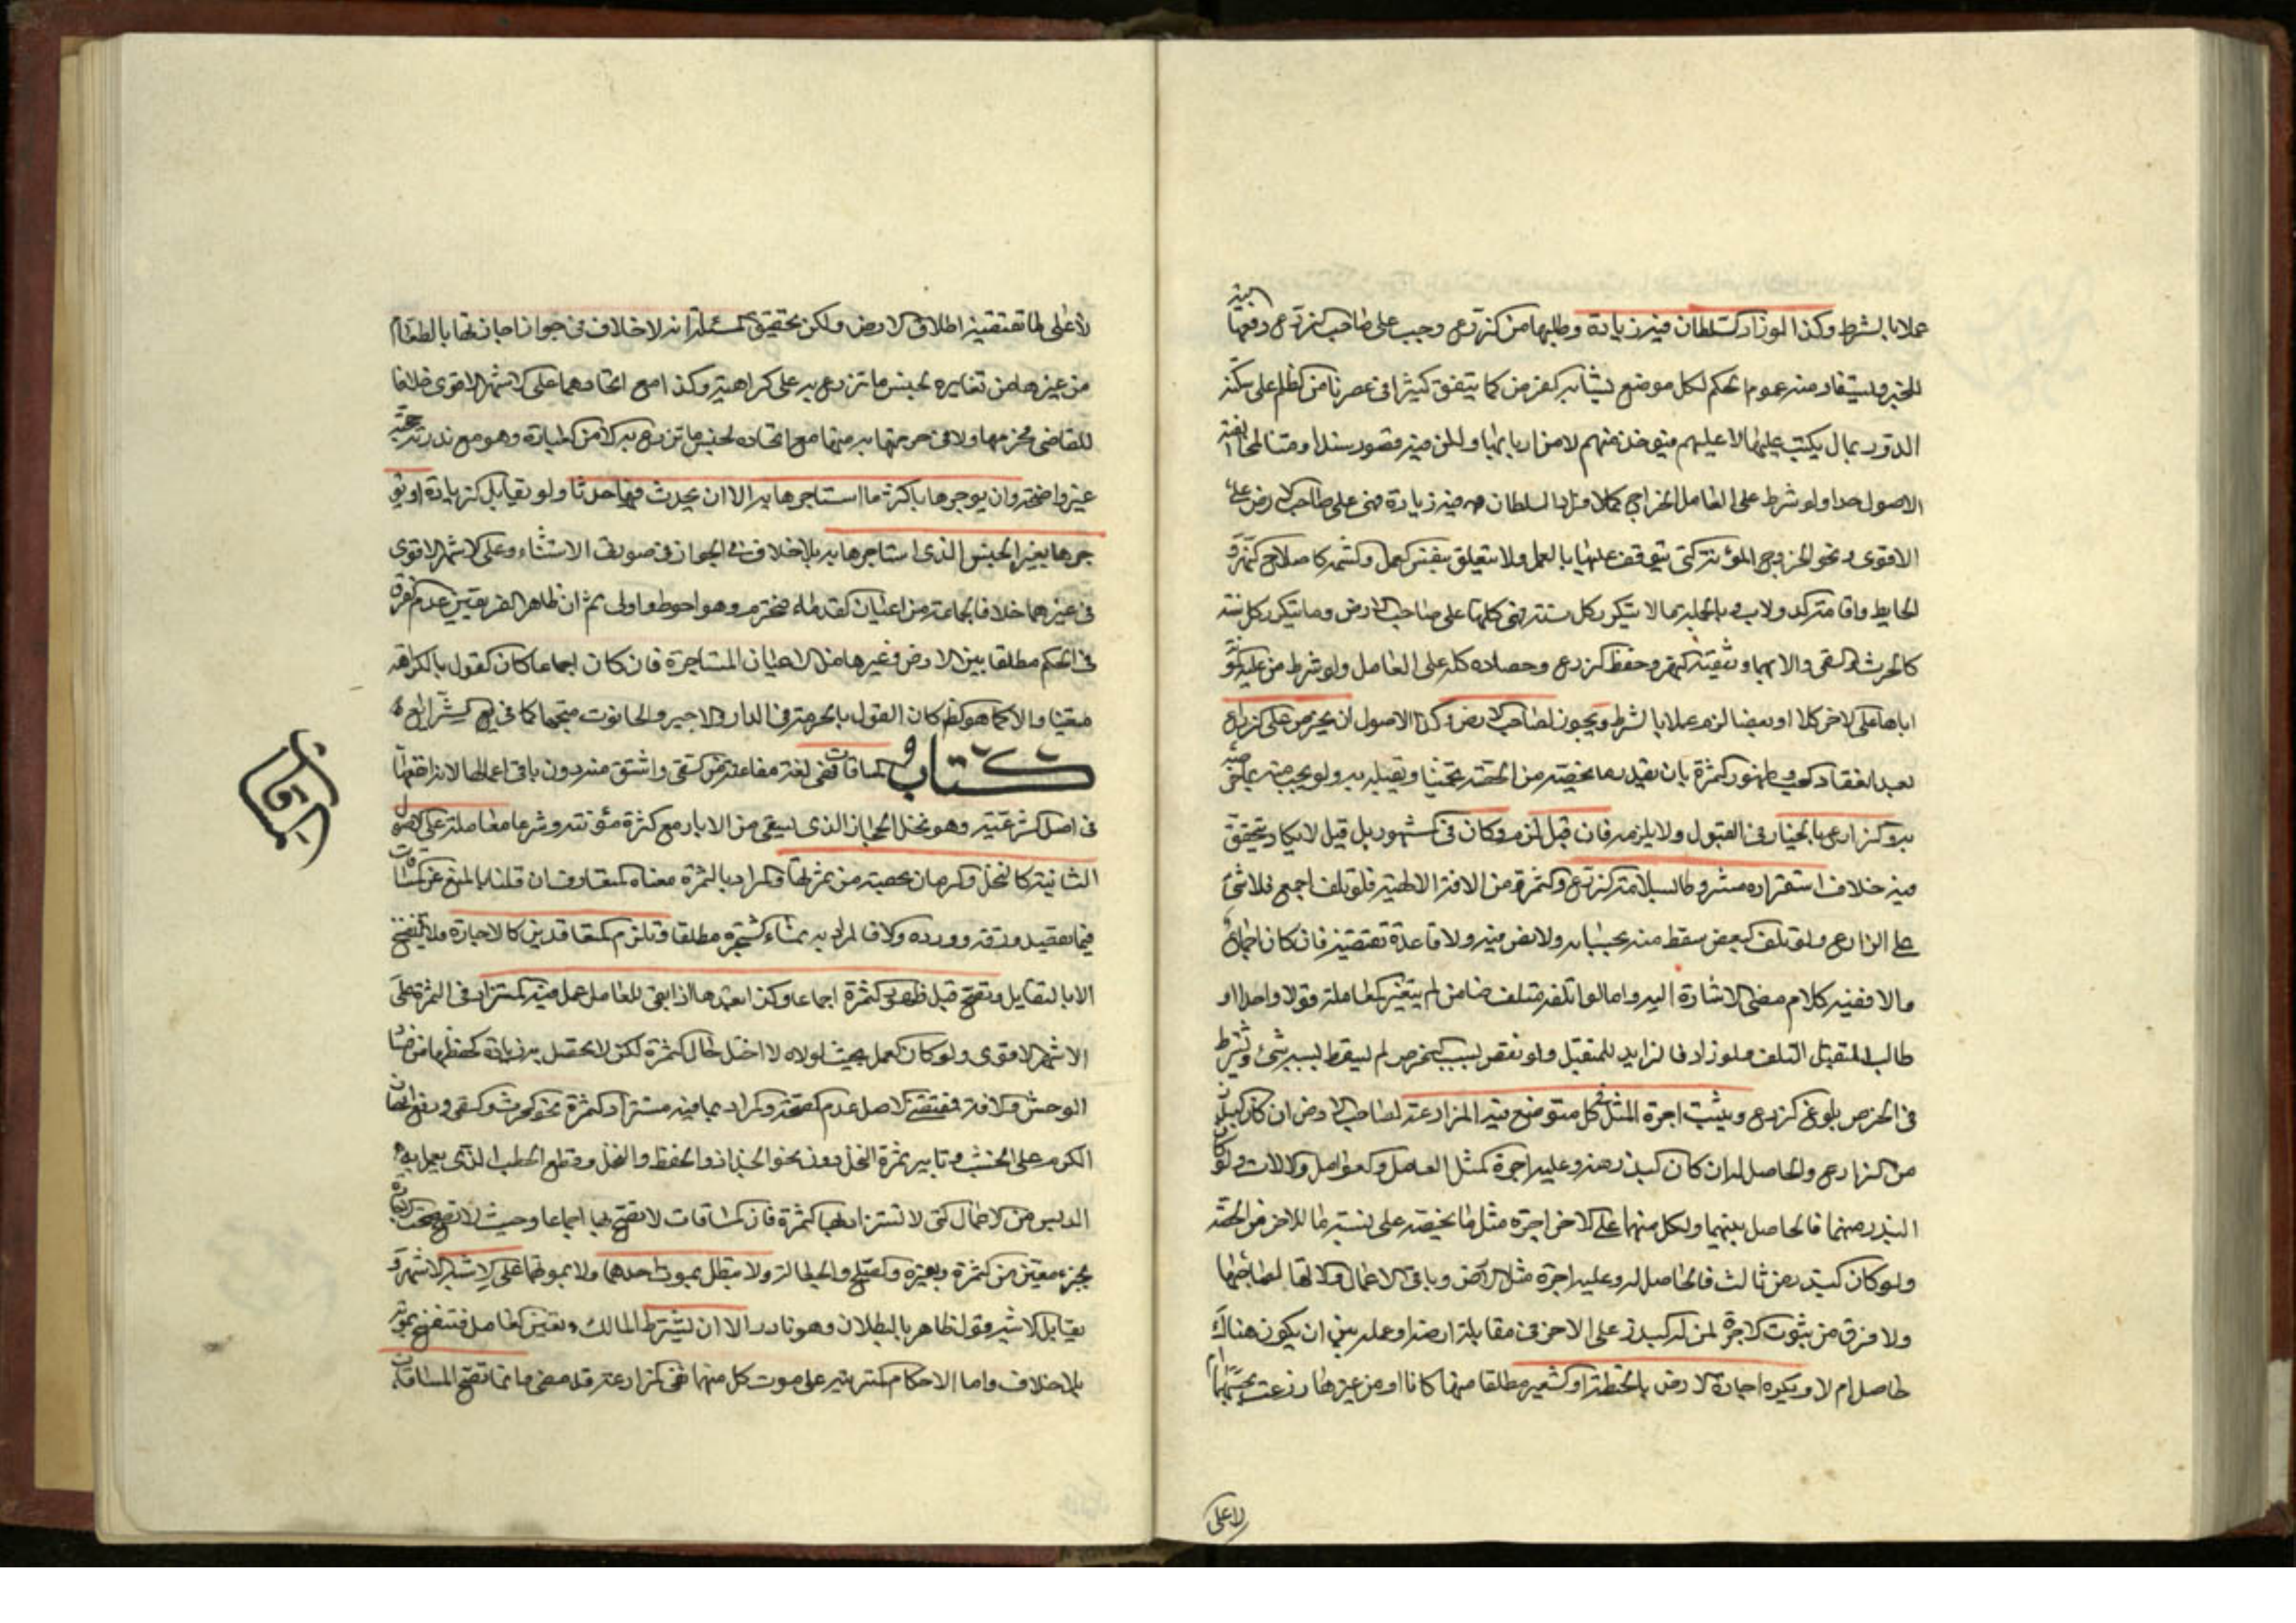 عملا بالشرط وكذا لو زاد السلطان فيه زيادة وطلبها من الزرع وجب على صاحب الزرع دفعها
للخبر ويستفاد منه عموم الحكم لكل موضع يشابه كما يتفق كثيرا في عصرنا من الظلم على سكنة
الدور بمال يكتب عليها لا عليهم فيؤخذ منهم لا من اربابها ولكن فيه قصور سندا
الاصول جدا ولو شرط على العامل الخراج كملا السلطان فيه زيادة فهي على صاحب الارض على
الاقوى ونحو الخروج المؤنة التي يتوقف عليها بالعمل ولا يتعلق بنفس العمل كاصلاح النهر و
الحايط واقامة الدولاب وبالجملة ما لا يتكرر كل سنة فهي كلها على صاحب الارض وما يتكرر كل سنة
كالحرث والسقي والاتها وتنقية النهر وحفظ الزرع وحصاده كله على العامل ولو شرط من عليه
اياها على الاخر كلا او بعضا لزم عملا بالشرط ويجوز لصاحب الارض الاصول ان يخرص على الزارع
بعد انعقاد الحب وظهور الثمرة بان يقدر ما يخصه من الحصة تخمينا ويقبله به ولو بحب منه
والزارع بالخيار في القبول ولا يلزمه فان قبل لزم وكان في المشهور بل قيل لا يكاد يتحقق
فيه خلاف استقراره مشروطا بسلامة الزرع والثمرة من الافة الالهية فلو تلف اجمع فلا شئ
على الزارع ولو تلف البعض سقط منه بحسابه ولا نص فيه ولا قاعدة تقتضيه فان كان اجماع
والا ففيه كلام مضى الاشارة اليه واما لو اتلفه متلف ضامن لم يتغير المعاملة قولا واحدا و
طالب المتقبل المتلف ولو زاد فالزايد للمتقبل ولو نقص بسبب الخرص لم يسقط بسببه شئ ويشترط
في الخرص بلوغ الزرع ويثبت اجرة المثل في كل موضع المزارعة لصاحب الارض ان كان البذر
من الزارع والحاصل له ان كان البذر منه وعليه اجرة مثل العامل والعوامل والالات ولو كان
البذر منهما فالحاصل بينهما ولكل منهما على الاخر اجرة مثل ما يخصه على نسبة ما للاخر من الحصة
ولو كان البذر من ثالث فالحاصل له وعليه اجرة مثل الارض وباقي الاعمال والاتها
ولا فرق من ثبوت الاجرة لمن له البذر على الاخر في مقابلة ارضه او عمله بين ان يكون هناك
حاصل ام لا ويكره اجارة الارض بالحنطة او الشعير مطلقا منها كانا او من غيرها
لا على
لا على ما تقتضيه اطلاق الارض ولكن تحقيق المسئلة انه لا خلاف في جواز اجارتها بالطعام
من غيرها من تغايره لجنس ما تزرع به على كراهية وكذا مع اتحادهما على الاشهر الاقوى خلافا
للقاضي فحرمها ولا في حرمتها به منها مع اتحاده لجنس ما تزرع به وهو مع ندرته
غير واضحة وان يوجرها باكثر مما استاجرها به الا ان يحدث فيها حدثا ولو تقابل الزيادة او يؤ
جرها بغير الجنس الذي استاجرها به بلا خلاف في الجواز في صورتي الاستثناء وعلى الاشهر الاقوى
في غيرهما خلافا لجماعة من اعيان القدماء فحرموه وهو احوط واولى ثم ان ظاهر الفريقين عدم الفرق
في الحكم مطلقا بين الارض وغيرها من الاعيان المستاجرة فان كان اجماعا كان القول بالكراهة
متعينا والا كما هو كان القول بالحرمة في الدار والاجير والحانوت متجها كما في الشرائع
كتاب المساقاة وهي لغة مفاعلة من السقي واشتق منه دون باقي اعمالها لانه انفعها
في اصل الشرعية وهو نخل الحجاز الذي يسقى من الابار مع كثرة مؤنته وشرعا معاملة على الاصول
الثابتة كالنخل والكرم بحصة من ثمرتها والمراد بالثمرة معناه المتعارف ان قلنا بالمنع عن المساقات
فيما يقصد ورقه وورده والا فالمراد به نماء الشجرة مطلقا وتلزم المتعاقدين كالاجارة ولا تنفسخ
الا بالتقايل وتصح قبل ظهور الثمرة اجماعا وكذا بعدها اذا بقي للعامل عمل فيه المستزاد في الثمرة على
الاشهر الاقوى ولو كان العمل بحيث لولاه لاختل حال الثمرة لكن لا يحصل به زيادة كحفظها من فساد
الوحش والافة فمقتضى الاصل عدم الصحة والمراد بما فيه مستزاد الثمرة نحو الحرث والسقي ورفع اغصان
الكرم على الخشب وتابير ثمرة النخل دون نحو الجذاذ والحفظ والنقل وقطع الحطب الذي يعمل به
الدبس من الاعمال التي لا تستزاد بها الثمرة فان المساقات لا تصح بها اجماعا وحيث لا تصح
بجزء معين من الثمرة والجعالة ولا تبطل بموت احدهما ولا بموتهما على الاشبه الاشهر و
يقابل الاشبه قول ظاهر بالبطلان وهو نادر الا ان يشترط المالك تعيين العامل فتنفسخ بموته
بلا خلاف واما الاحكام المترتبة على موت كل منهما ففي المزارعة قد مضى ما تصح المساقاة
المساقات